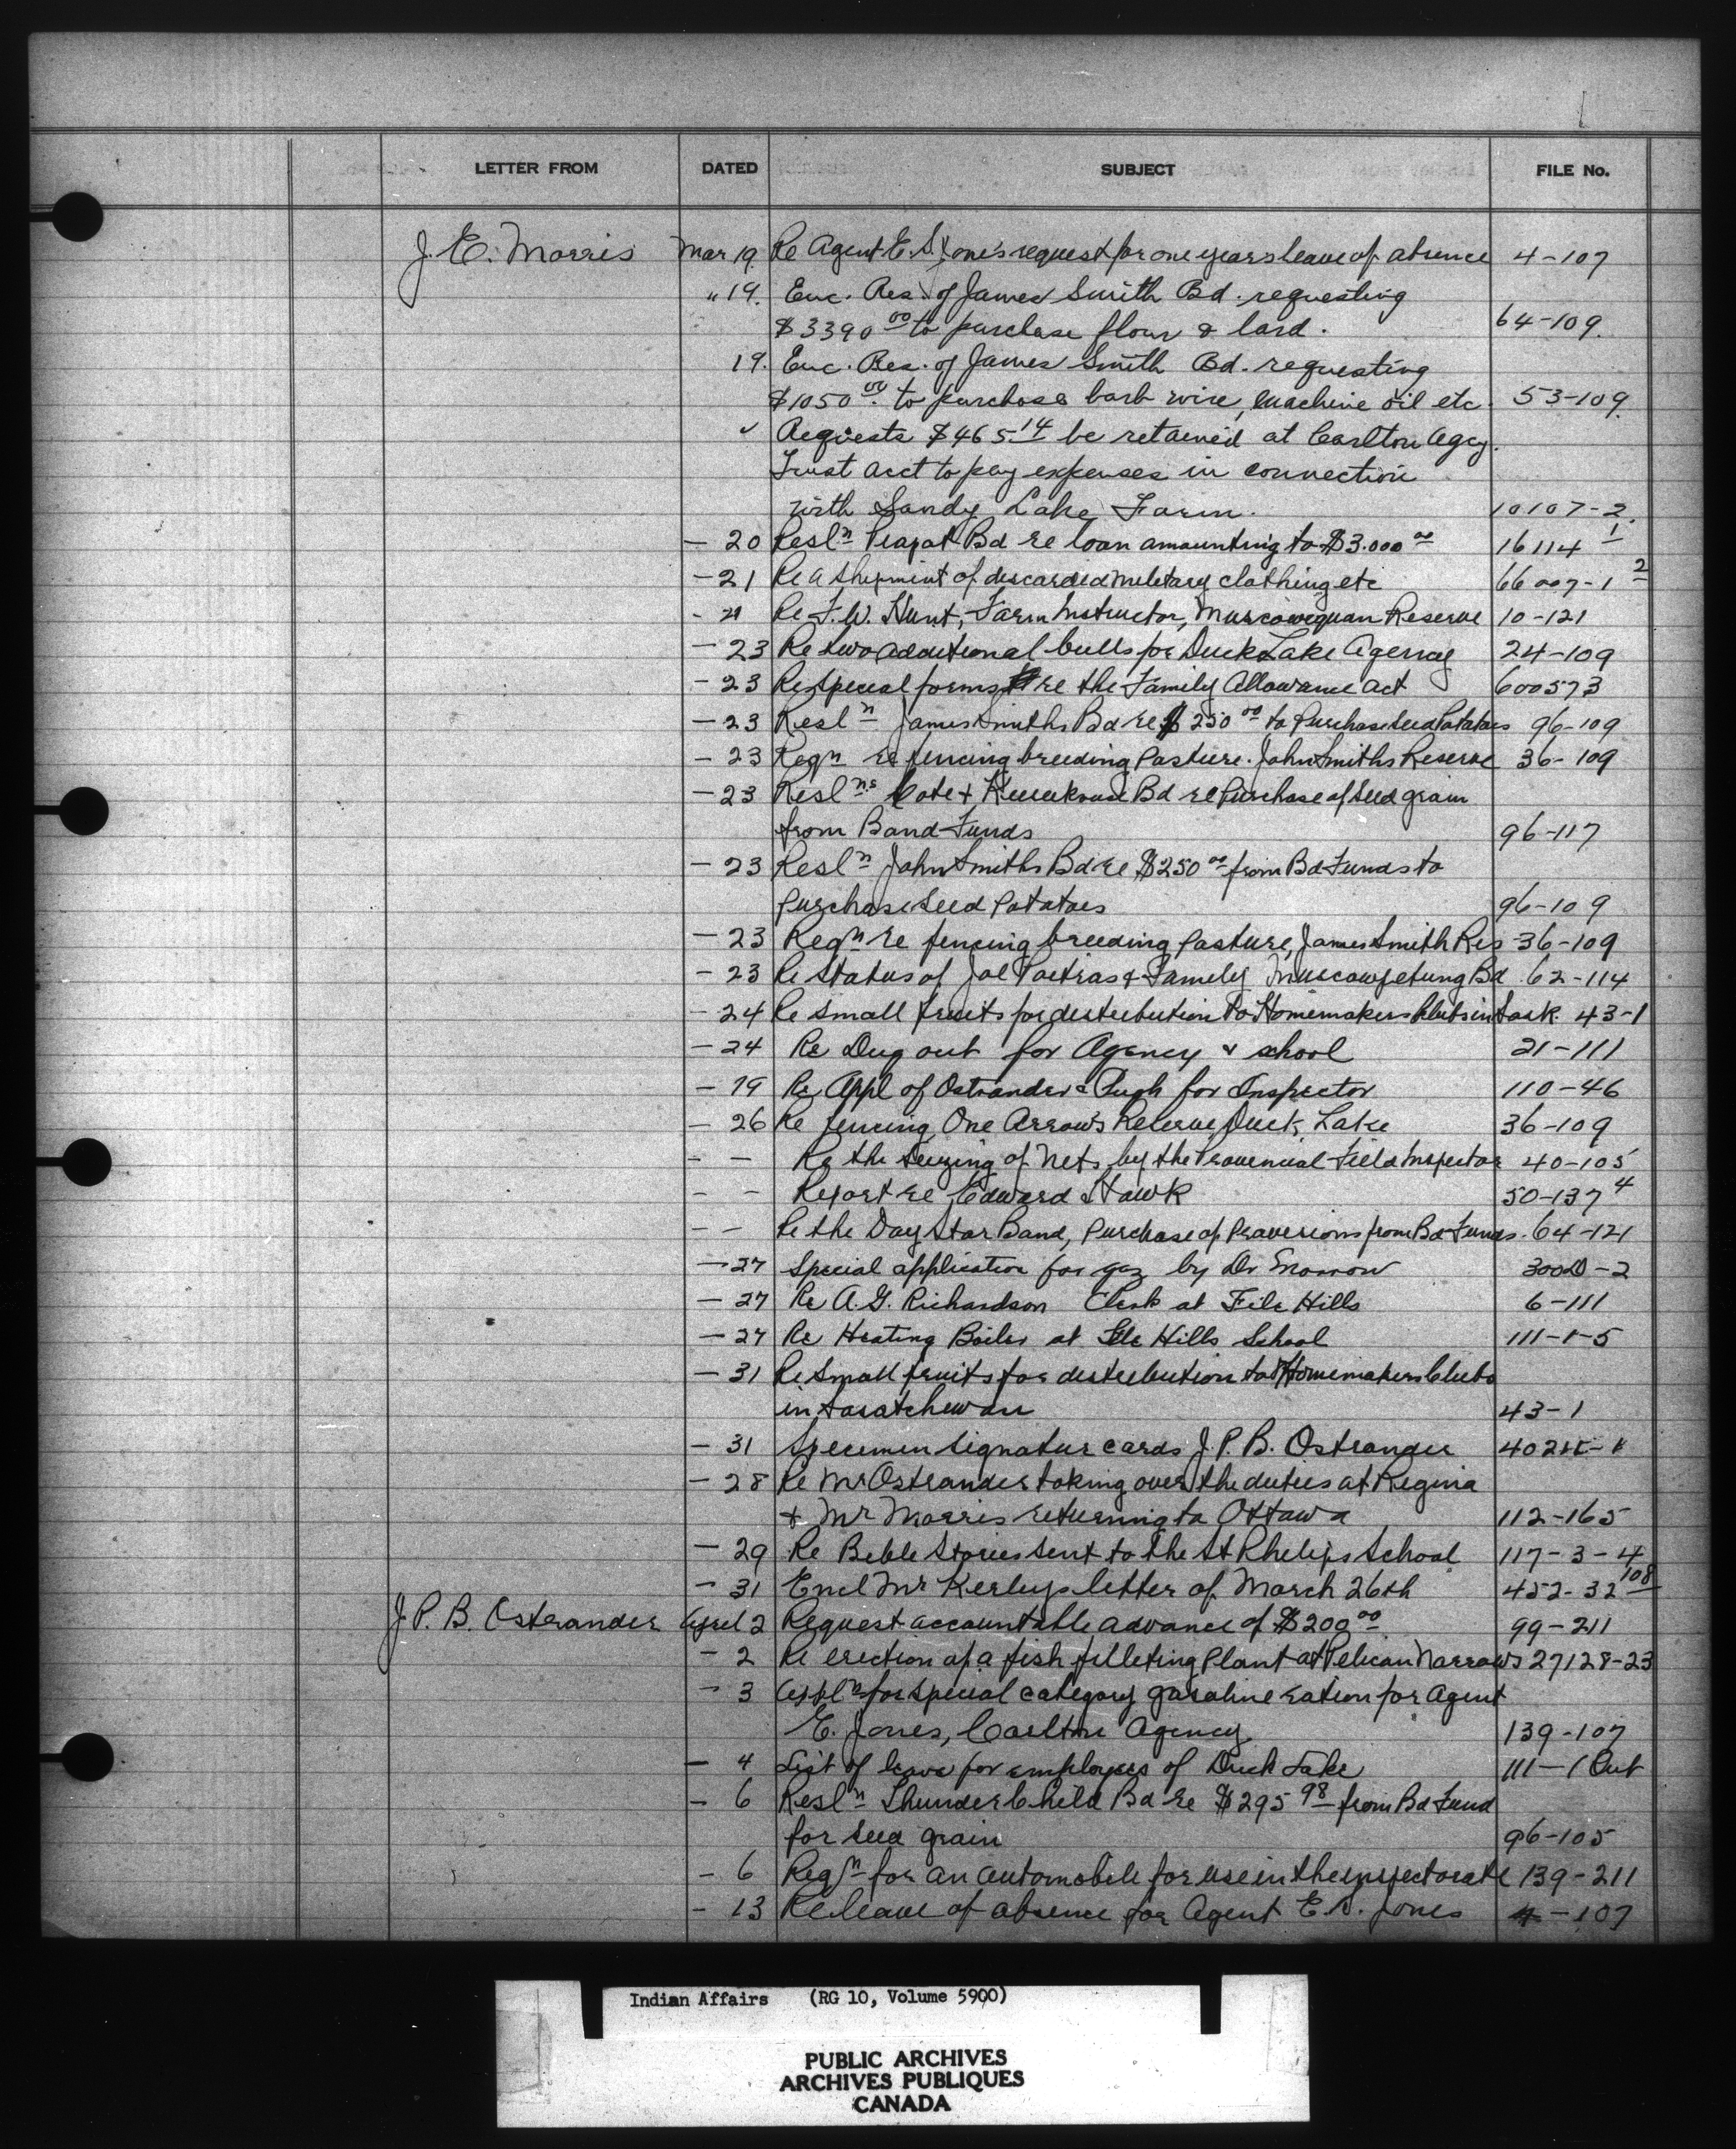 LETTER FROM DATED SUBJECT FILE No.
J. E. Morris Mar 19. Re Agent E. S. Jones request for one years leave of absence 4-107
" 19. Enc. Res. of James Smith Bd. requesting
$3390 00 to purchase flour & lard. 64-109.
19. Enc. Res. of James Smith Bd. requesting
$1050 00. to purchase barb wire, machine oil etc. 53-109.
Requests $465 14 be retained at Carlton Agcy.
Trust acct to pay expenses in connection
with Sandy Lake Farm. 10107-2.
- 20 Resln Piapot Bd re loan amounting to $3.000 00 16114 1
- 21 Re a shipment of discarded military clothing etc 66007-1 2
- 21 Re F. W. Hunt, Farm Instructor, Muscowequan Reserve 10-121
- 23 Re two additional bulls for Duck Lake Agency 24-109
- 23 Re special forms re the Family Allowance Act 600573
- 23 Resln James Smiths Bd re $250 00 to Purchase Seed Potatoes 96-109
- 23 Reqn re fencing breeding Pasture. John Smiths Reserve 36-109
- 23 Reslns Cote & Bd re Purchase of Seed grain
from Band Funds 96-117
- 23 Resln John Smiths Bd re $250 00 from Bd Funds to
Purchase Seed Potatoes 96-109
- 23 Reqn re fencing breeding Pasture, James Smith Res 36-109
- 23 Re Status of Joe Poitras & Family Muscowpetung Bd. 62-114
- 24 Re small fruits for distribution to Homemakers Clubs in Sask. 43-1
- 24 Re Dug out for Agency & school 21-111
- 19 Re Appl of Ostrander & Pugh for Inspector 110-46
- 26 Re fencing One Arrow's Reserve, Duck Lake 36-109
- - Re the Seizing of Nets by the Provencial Field Inspector 40-105
- - Report re Edward Hawk 50-137 4
- - Re the Day Star Band, Purchase of Provisions from Bd Funds. 64-121
- 27 Special application for gaz by Dr Morrow -2
- 27 Re A. G. Richardson Clerk at File Hills 6-111
- 27 Re Heating Boiler at File Hills School 111-1-5
- 31 Re Small fruits for distribution to Homemakers Clubs
in Saskatchewan 43-1
- 31 Specimen signature cards J. P. B. Ostrander
- 28 Re Mr Ostrander taking over the duties at Regina
& Mr Morris returning to Ottawa 112-165
- 29 Re Bible Stories sent to the St Philips School 117-3-4
- 31 Encl Mr letter of March 26th 452-32 108
J. P. B. Ostrander April 2 Request accountable advance of $200 00 99-211
- 2 Re erection of a fish filleting Plant at Pelican Narrows 27128-23
- 3 Appln for special category gasoline ration for Agent
E. Jones, Carlton Agency 139-107
- 4 List of leave for employees of Duck Lake 111-1 Out
- 6 Resln Thunderchild Bd re $295 98 from Bd Fund
for seed grain 96-105
- 6 Reqn for an automobile for use in the inspectorate 139-211
- 13 Re leave of absence for Agent E. S. Jones 4-107
Indian Affairs (RG 10, Volume 5900)
PUBLIC ARCHIVES
ARCHIVES PUBLIQUES
CANADA